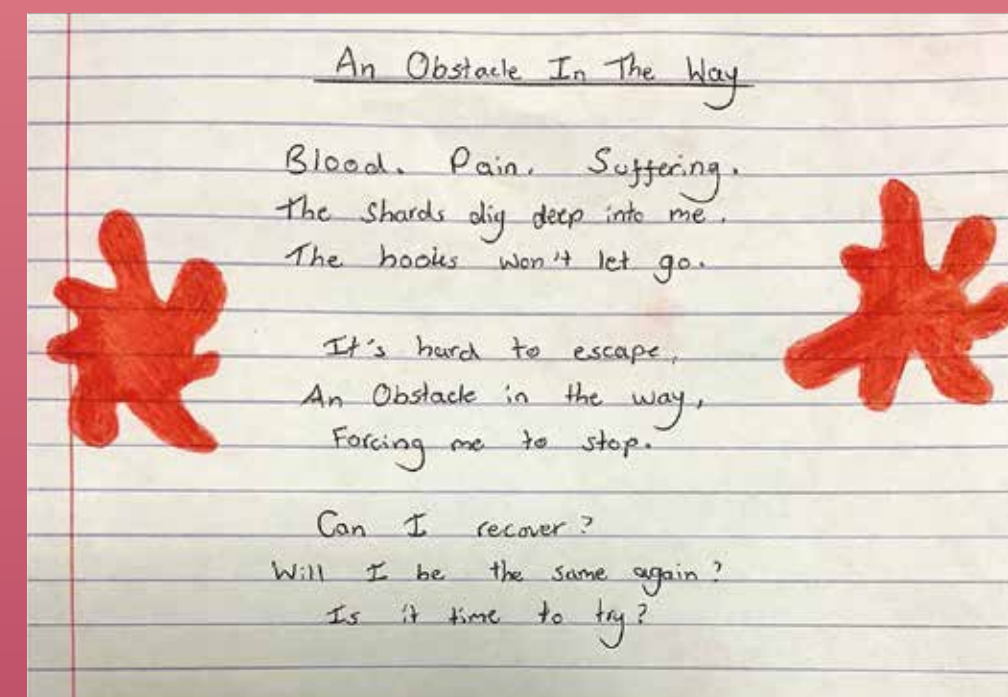 An Obstacle In The Way
Blood. Pain. Suffering.
The Shards dig deep into me.
The hooks won't let go.
It's hard to escape,
An Obstacle in the way,
Forcing me to stop.
Can I recover?
Will I be the same again?
Is it time to try?